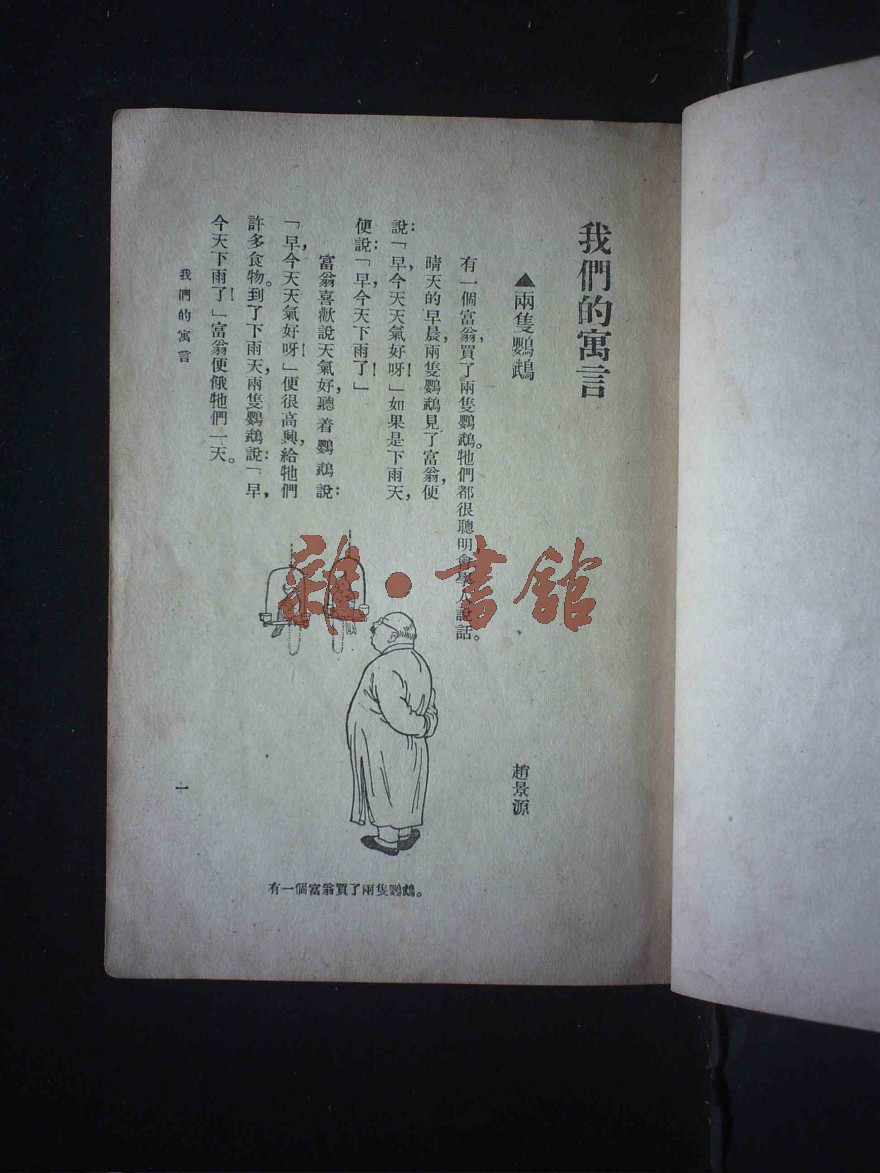 我們的寓言
▲兩隻鸚鵡
趙景源
有一個富翁，買了兩隻鸚鵡。牠們都很聰明，會學人說話。
晴天的早晨，兩隻鸚鵡見了富翁，便
說：「早，今天天氣好呀！」如果是下雨天，
便說：「早，今天下雨了！」
富翁喜歡說天氣好，聽着鸚鵡說：
「早，今天天氣好呀！」便很高興，給牠們
許多食物。到了下雨天，兩隻鸚鵡說：「早，
今天下雨了！」富翁便餓牠們一天。
有一個富翁買了兩隻鸚鵡。
我們的寓言
一
雜·書館